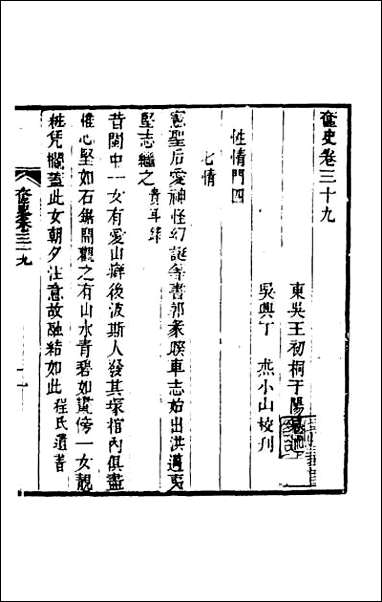 奩史卷三十九
東吳王初桐于陽
吳興丁 燕小山校刋
性情門四
七情
憲聖后愛神怪幻誕等書郭彖睽車志始出洪邁夷
堅志繼之 貴耳錄
昔閩中一女有愛山癖後波斯人發其塚棺內俱盡
惟心堅如石鋸開觀之有山水青碧如畫傍一女靚
粧凭欄蓋此女朝夕注意故融結如此 程氏遺書
奩史卷三十九
一